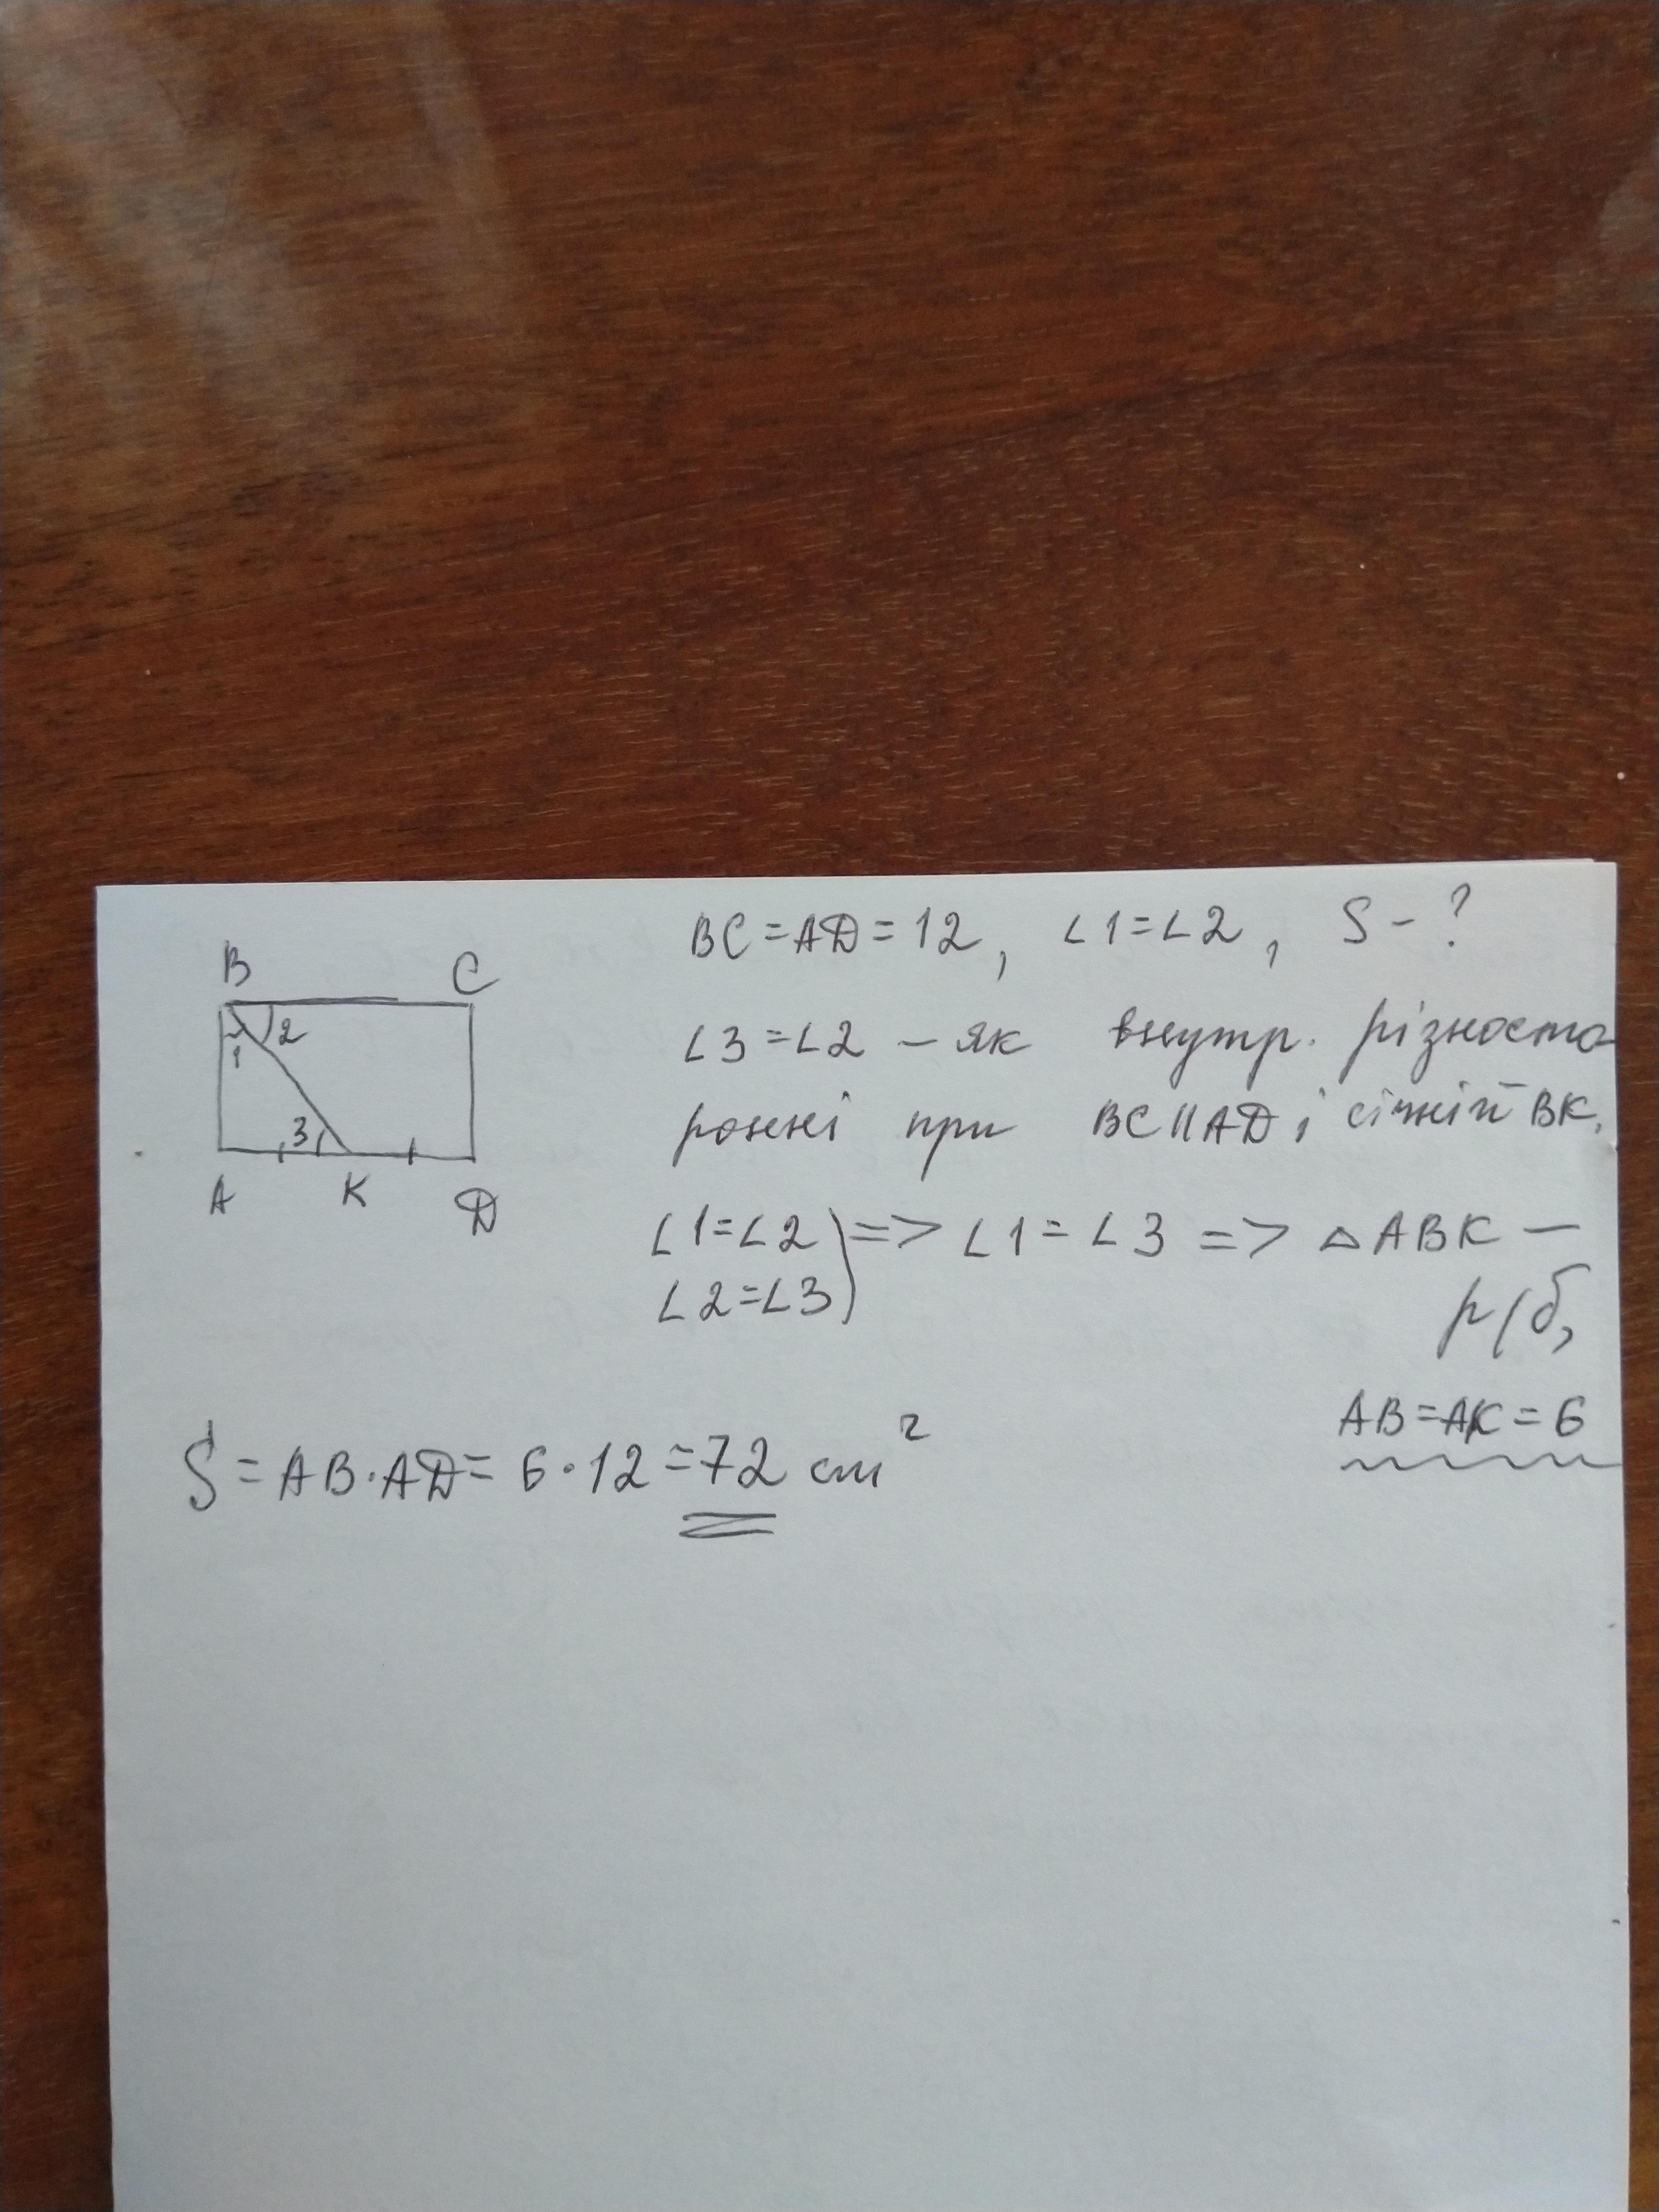 BC = AD = 12, ∠1 = ∠2, S - ?
B C
2
1
3
A K D
∠3 = ∠2 – як внутр. різносто
ронні при BC || AD і січній BK.
∠1 = ∠2 ) => ∠1 = ∠3 => △ABK –
∠2 = ∠3 )
р/б,
AB = AK = 6
S = AB · AD = 6 · 12 = 72 см²